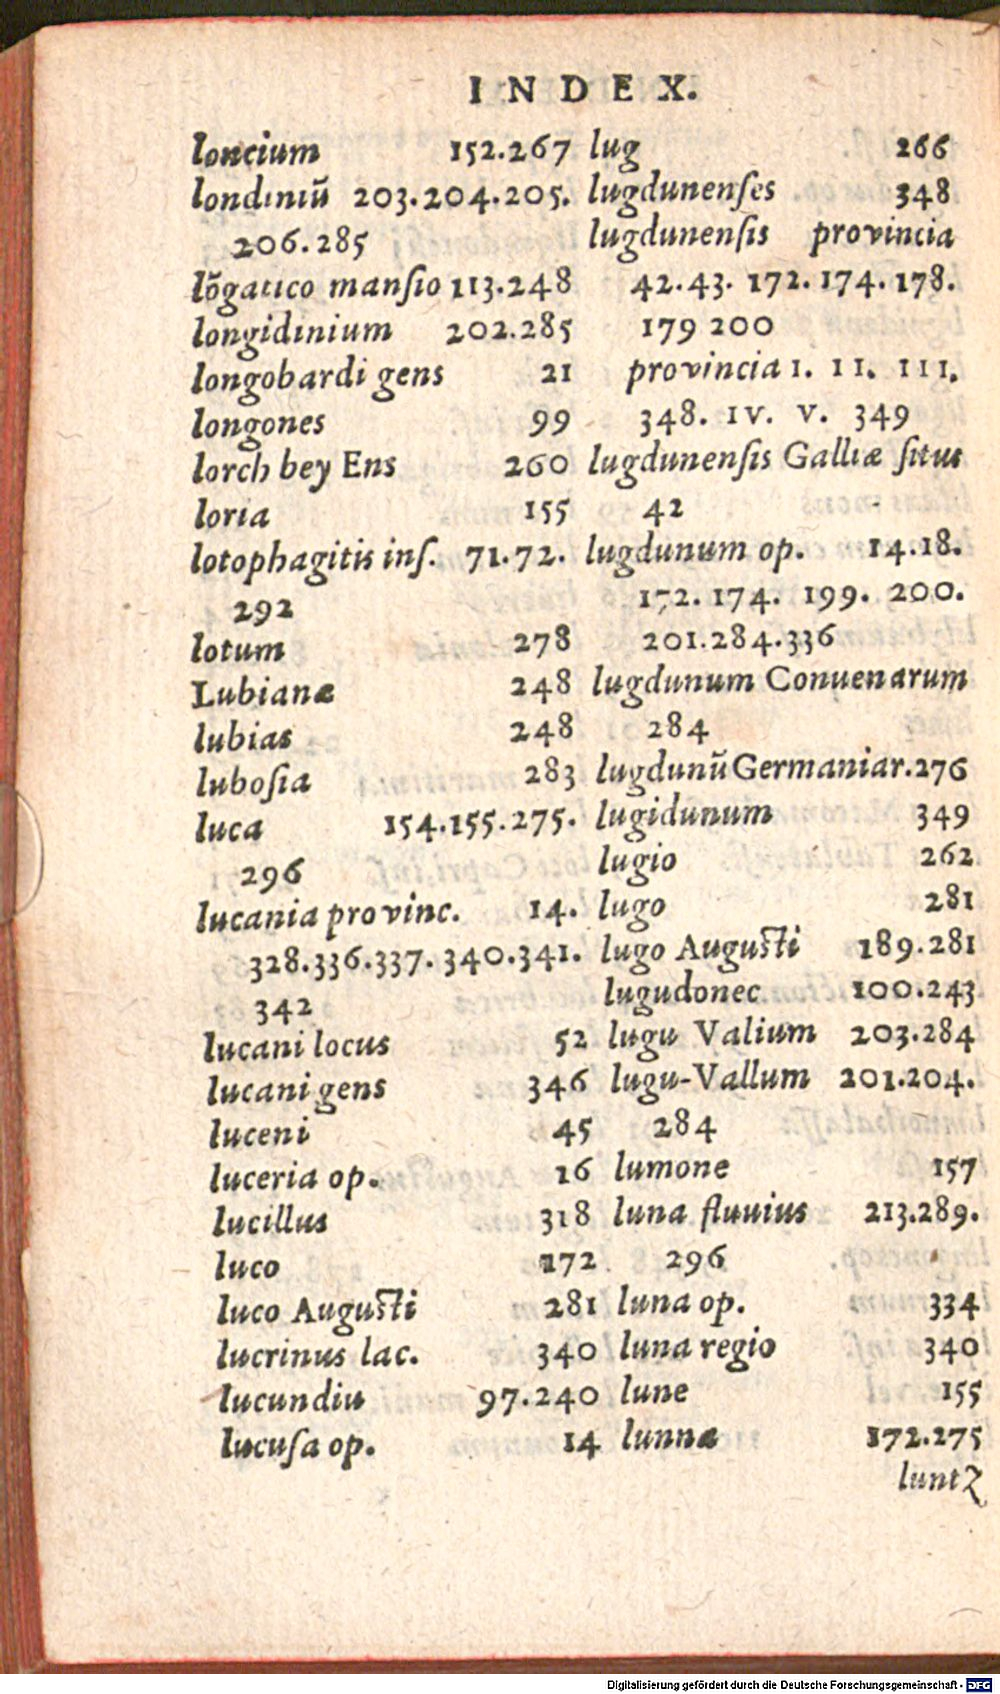 INDEX.
loncium 152.267
londiniũ 203.204.205.
206.285
lõgatico manſio 113.248
longidinium 202.285
longobardi gens 21
longones 99
lorch bey Ens 260
loria 155
lotophagitis inſ. 71.72.
292
lotum 278
Lubianæ 248
lubias 248
luboſia 283
luca 154.155.275.
296
lucania provinc. 14.
328.336.337.340.341.
342
lucani locus 52
lucani gens 346
luceni 45
luceria op. 16
lucillus 318
luco 172
luco Auguſti 281
lucrinus lac. 340
lucundiu 97.240
lucuſa op. 14
lug 266
lugdunenſes 348
lugdunenſis provincia
42.43. 172. 174. 178.
179 200
provincia I. II. III.
348. IV. V. 349
lugdunenſis Galliæ ſitus
42
lugdunum op. 14.18.
172. 174. 199. 200.
201.284.336
lugdunum Conuenarum
284
lugdunũ Germaniar.276
lugidunum 349
lugio 262
lugo 281
lugo Auguſti 189.281
lugudonec 100.243
lugu Valium 203.284
lugu-Vallum 201.204.
284
lumone 157
luna fluuius 213.289.
296
luna op. 334
luna regio 340
lune 155
lunnæ 172.275
luntz
Digitalisierung gefördert durch die Deutsche Forschungsgemeinschaft - DFG